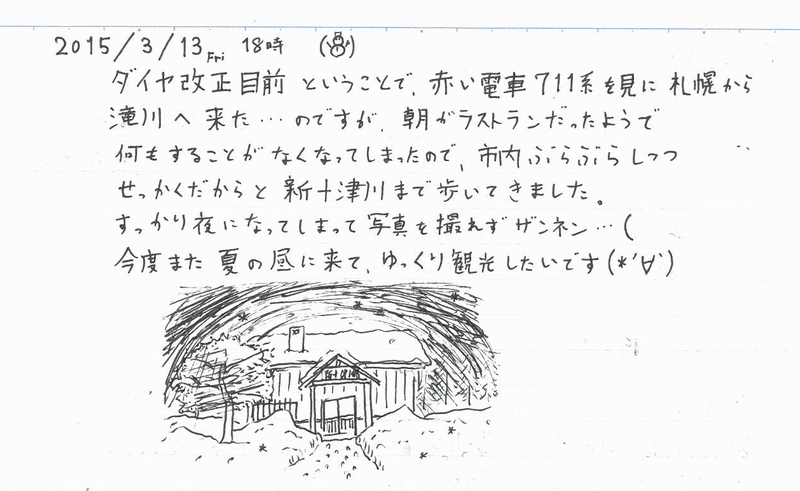 2015/3/13 Fri 18時 (☃)
ダイヤ改正目前 ということで、赤い電車711系を見に 札幌から
滝川へ 来た…のですが、朝がラストランだったようで
何もすることがなくなってしまったので、市内ぶらぶらしつつ
せっかくだからと 新十津川まで歩いてきました。
すっかり夜になってしまって 写真を撮れず ザンネン…(
今度また 夏の昼に来て、ゆっくり観光したいです(*'∀`)